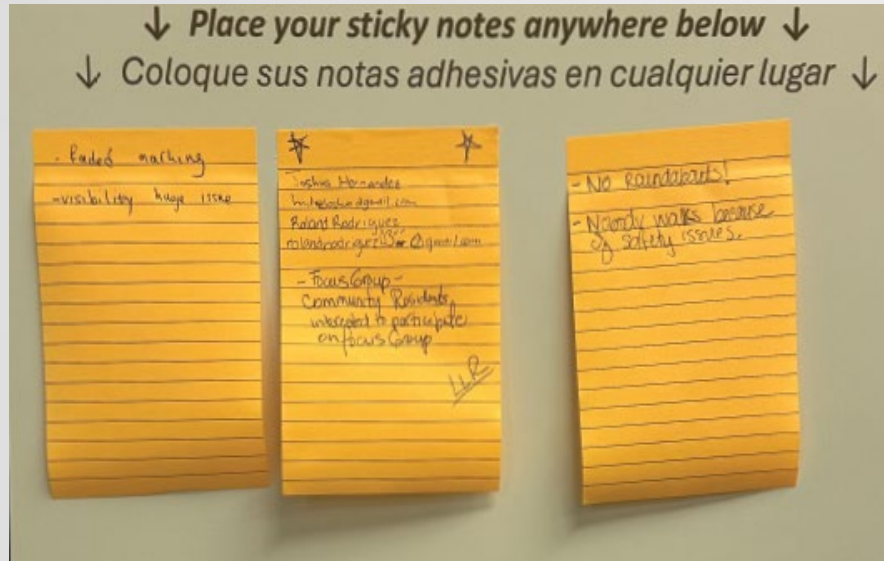 ↓ Place your sticky notes anywhere below ↓
↓ Coloque sus notas adhesivas en cualquier lugar ↓
- Faded marking
- visibility huge issue
Joshua Hernandez
Roland Rodriguez
- Focus Group -
Community Residents
interested to participate
on focus Group
LLR
- No Roundabouts!
- Nobody walks because
of safety issues.